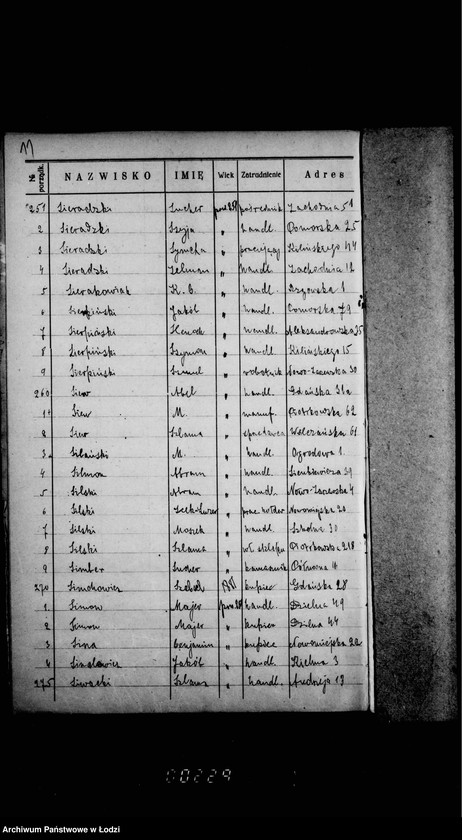 11
№ porządk. NAZWISKO IMIĘ Wiek Zatrudnienie Adres
251 Sieradzki Lucher pow 25 pośrednik Zachodnia 51
2 Sieradzki Szyja " handl. Pomorska 25
3 Sieradzki Symcha " pracujący Kilińskiego 44
4 Sieradzki Zelman " handl. Zachodnia 12
5 Sierakowiak K. B. " handl. 1
6 Sierpiński Jakób " handl. Pomorska 79
7 Sierpiński Henoch " handl. Aleksandrowska 35
8 Sierpiński Szymon " handl. Kilińskiego 15
9 Sierpiński Szmul " robotnik Nowo-Zarzewska 30
260 Siew Abel " handl. Gdańska 31a
1 Siew M. " manuf. Piotrkowska 62
2 Siew Szlama " sprzedawca Wólczańska 61
3 M. " handl. Ogrodowa 1
4 Silman Abram " handl. Sienkiewicza 59
5 Silski Abram " handl. Nowo-Zarzewska 4
6 Silski Icek-Lewi " prac. Nowomiejska 20
7 Silski Moszek " handl. Szkolna 30
8 Silski Szlama " wł. sklepu Piotrkowska 218
9 Simber " Północna
270 Simchowicz kupiec Gdańska 28
1 Simon Majer pow 25 handl. Dzielna 49
2 Simon Majer " kupiec Dzielna 44
3 Sina Benjamin " kupiec Nowomiejska 22
4 Jakób " handl. Kielma 3
275 Siwacki Szlama " handl. Andrzeja 13
00229
Archiwum Państwowe w Łodzi